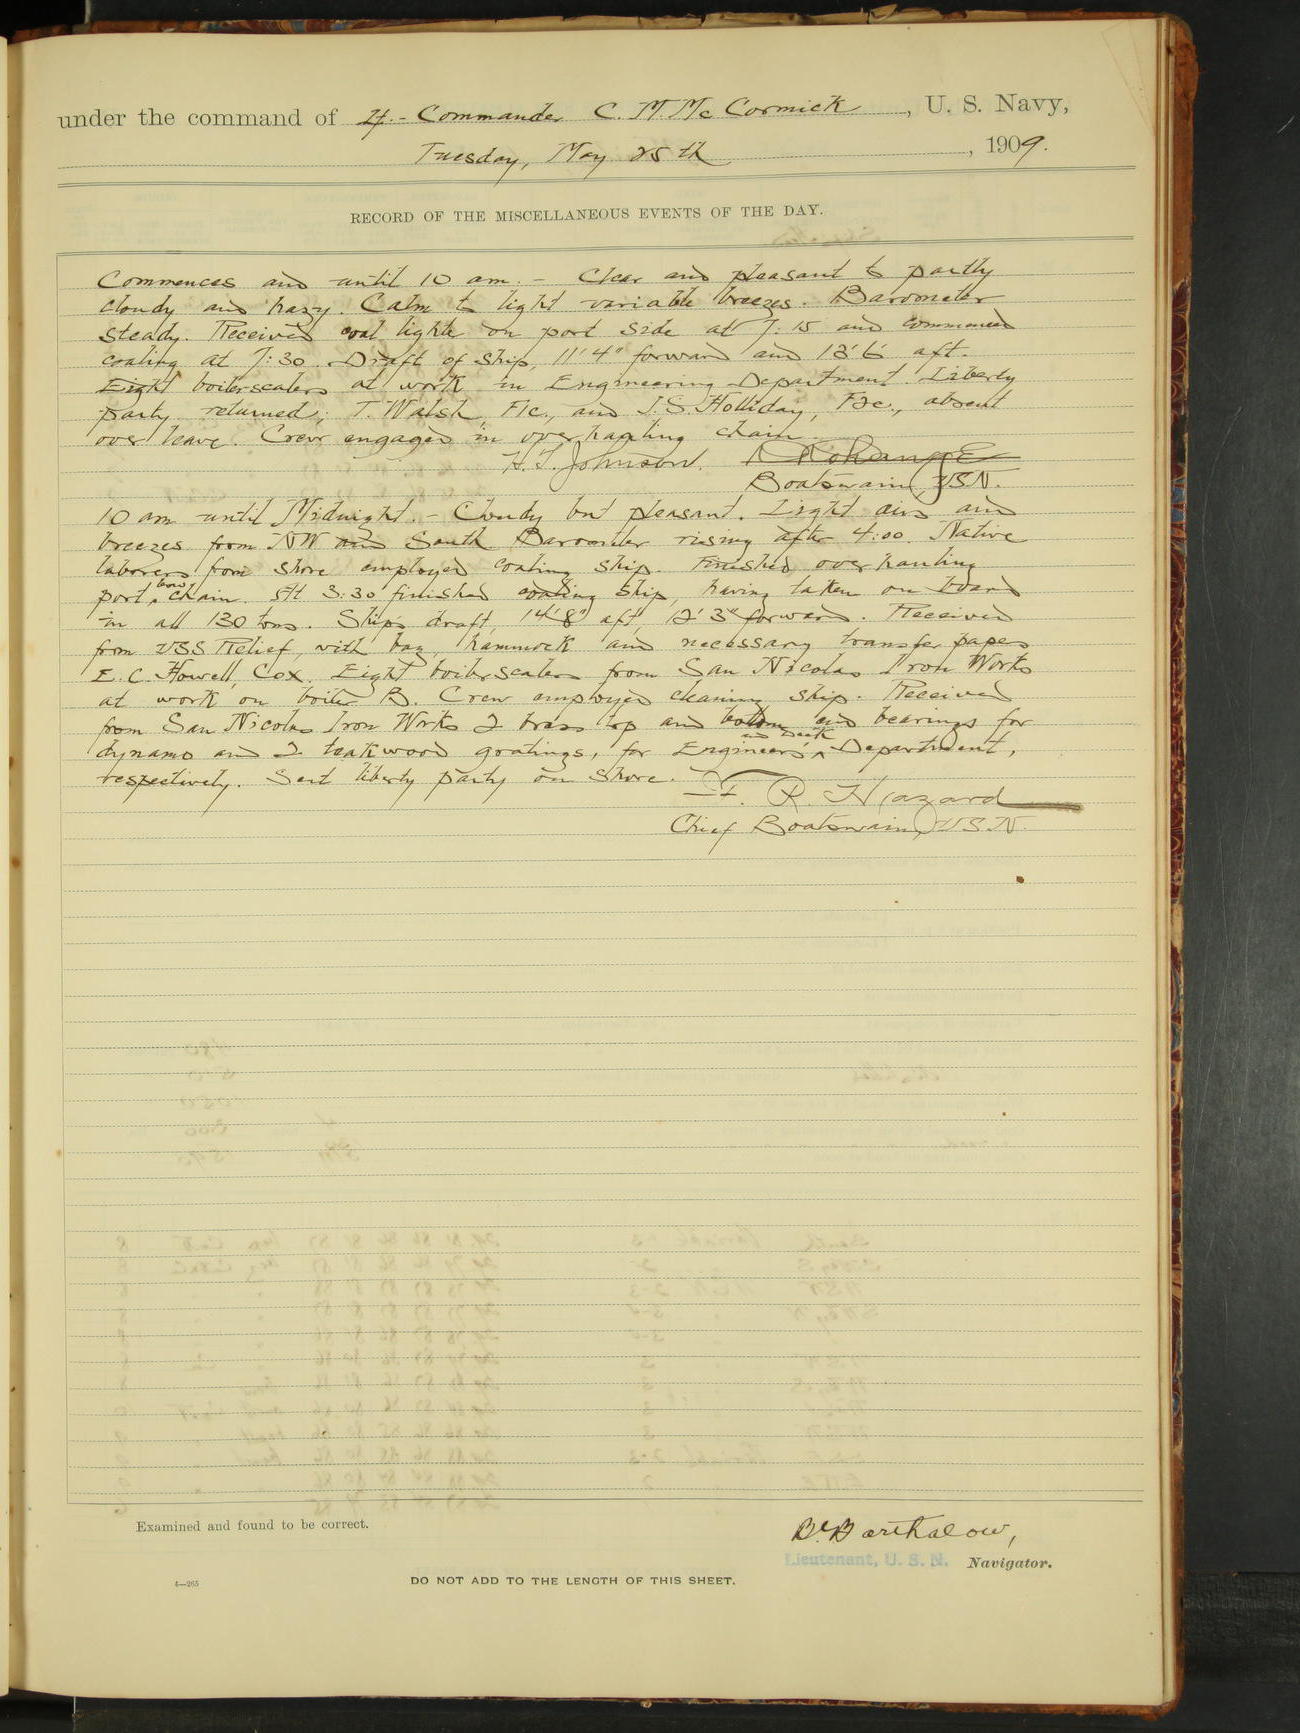 under the command of Lt.- Commander C. M. Mc Cormick, U. S. Navy,
Tuesday, May 25th, 1909.
RECORD OF THE MISCELLANEOUS EVENTS OF THE DAY.
Commences and until 10 am. - Clear and pleasant to partly
cloudy and hazy. Calm to light variable breezes. Barometer
steady. Received coal lighter on port side at 7:15 and commenced
coaling at 7:30. Draft of ship, 11' 4" forward and 13' 6" aft.
Eight boilerscalers at work in Engineering Department. Liberty
party returned; T. Walsh, F1c., and J. S. Holliday, F2c., absent
over leave. Crew engaged in overhauling chain.
H. T. Johnson.
Boatswain, USN.
10 am until Midnight. - Cloudy but pleasant. Light airs and
breezes from NW and South Barometer rising after 4:00. Native
laborers from shore employed coaling ship. Finished overhauling
port bow chain. At 3:30 finished coaling ship, having taken on board
in all 130 tons. Ship's draft, 14' 8" aft, 12' 3" forward. Received
from USS Relief, with bag, hammock and necessary transfer papers
E. C. Howell, Cox. Eight boilerscalers from San Nicolas Iron Works
at work on boiler B. Crew employed cleaning ship. Received
from San Nicolas Iron Works 2 brass top and bottom end bearings for
dynamo and 2 teakwood gratings, for Engineer's and Deck Department,
respectively. Sent liberty party on shore.
F. R. Hazard
Chief Boatswain, U.S.N.
Examined and found to be correct.
Barthalow,
Lieutenant, U. S. N. Navigator.
DO NOT ADD TO THE LENGTH OF THIS SHEET.
4—265